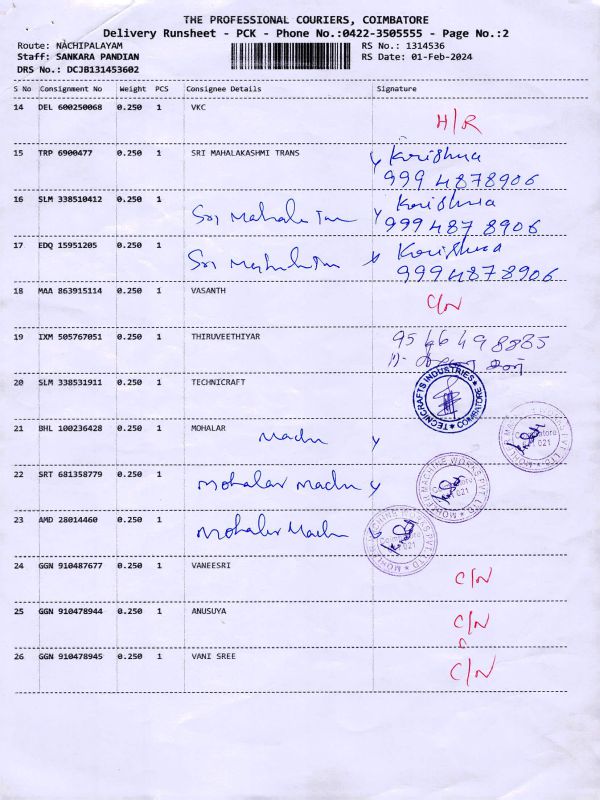 THE PROFESSIONAL COURIERS, COIMBATORE
Delivery Runsheet - PCK - Phone No.:0422-3505555 - Page No.:2
Route: NACHIPALAYAM RS No.: 1314536
Staff: SANKARA PANDIAN RS Date: 01-Feb-2024
DRS No.: DCJB131453602
S No Consignment No Weight PCS Consignee Details Signature
14 DEL 600250068 0.250 1 VKC H/R
15 TRP 6900477 0.250 1 SRI MAHALAKASHMI TRANS Krishna
999 4878906
16 SLM 338510412 0.250 1 Krishna
Sri Mahala Tran 999 487 8906
17 EDQ 15951205 0.250 1 Krishna
Sri 9994878906
18 MAA 863915114 0.250 1 VASANTH C/N
19 IXM 505767051 0.250 1 THIRUVEETHIYAR
20 SLM 338531911 0.250 1 TECHNICRAFT TECNICRAFTS INDUSTRIES COIMBATORE
21 BHL 100236428 0.250 1 MOHALAR
Machn
22 SRT 681358779 0.250 1 Mohalar Machn MACHINE WORKS PVT. LTD
23 AMD 28014460 0.250 1 Mohalar Machn MACHINE WORKS PVT. LTD
24 GGN 910487677 0.250 1 VANEESRI C/N
25 GGN 910478944 0.250 1 ANUSUYA C/N
26 GGN 910478945 0.250 1 VANI SREE C/N